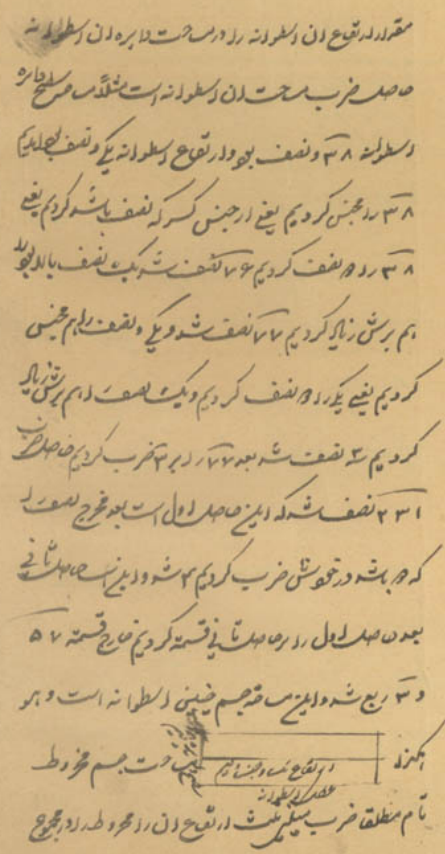 مقدار ارتفاع ان اسطوانه را در مساحت دایره ان اسطوانه
حاصل ضرب مساحت ان اسطوانه است مثلاً مساحت سطح دایره
اسطوانه ۳۸ و نصف بود و ارتفاع اسطوانه یکی و نصف
۳۸ را مجنس کردیم یعنی از جنس کسر که نصف باشد کردیم یعنی
۳۸ را نصف کردیم ۷۶ نصف شد یک نصف
هم برش زیاد کردیم ۷۷ نصف شد و یکی و نصف را هم مجنس
کردیم یعنی یک را نصف کردیم و یک نصف را هم برش زیاد
کردیم ۳ نصف شد بعد ۷۷ را بر ۳ ضرب کردیم حاصل ضرب
۲۳۱ نصف شد که این حاصل اول است بعد مخرج نصف را
که باشد در خودش ضرب کردیم ۴ شد و این است حاصل ثانی
بعد حاصل اول را بر حاصل ثانی قسمة کردیم خارج قسمة ۵۷
و ۳ ربع شد و این مساحة جسم چنین اسطوانه است و هو
هکذا مساحت جسم مخروط
ارتفاع
اسطوانه
تام مطلقا ضرب ثلث ارتفاع ان مخروط را در مجموع